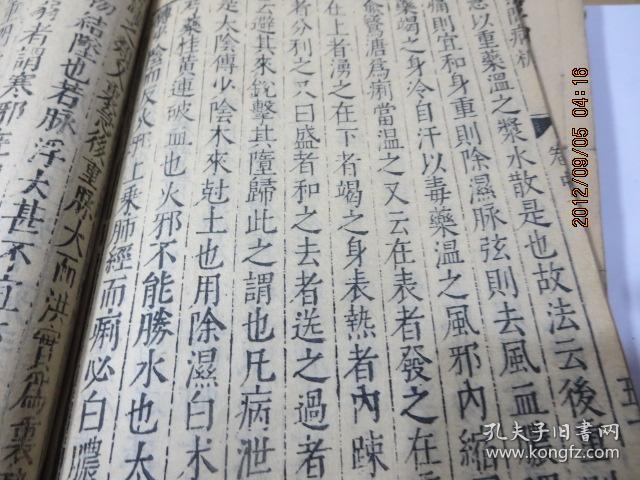 忌以重藥溫之漿水散是也故法云後重則
痛則宜和身重則除濕脉弦則去風血膿
藥竭之身冷自汗以毒藥溫之風邪內縮
俞鶩溏為痢當溫之又云在表者發之在
在上者湧之在下者竭之身表熱者內踈
者分利之又曰盛者和之去者送之過者
云避其來銳擊其墮歸此之謂也凡病泄
是太陰傳少陰木來尅土也用除濕白术
藥柱黃連破血也火邪不能勝水也太
乘肺經而痢必白膿
後重脉大而洪實為裏
物結墮也若脉浮大甚不宜
弱者謂寒邪
2012/09/05 04:16
孔夫子旧书网
www.kongfz.com